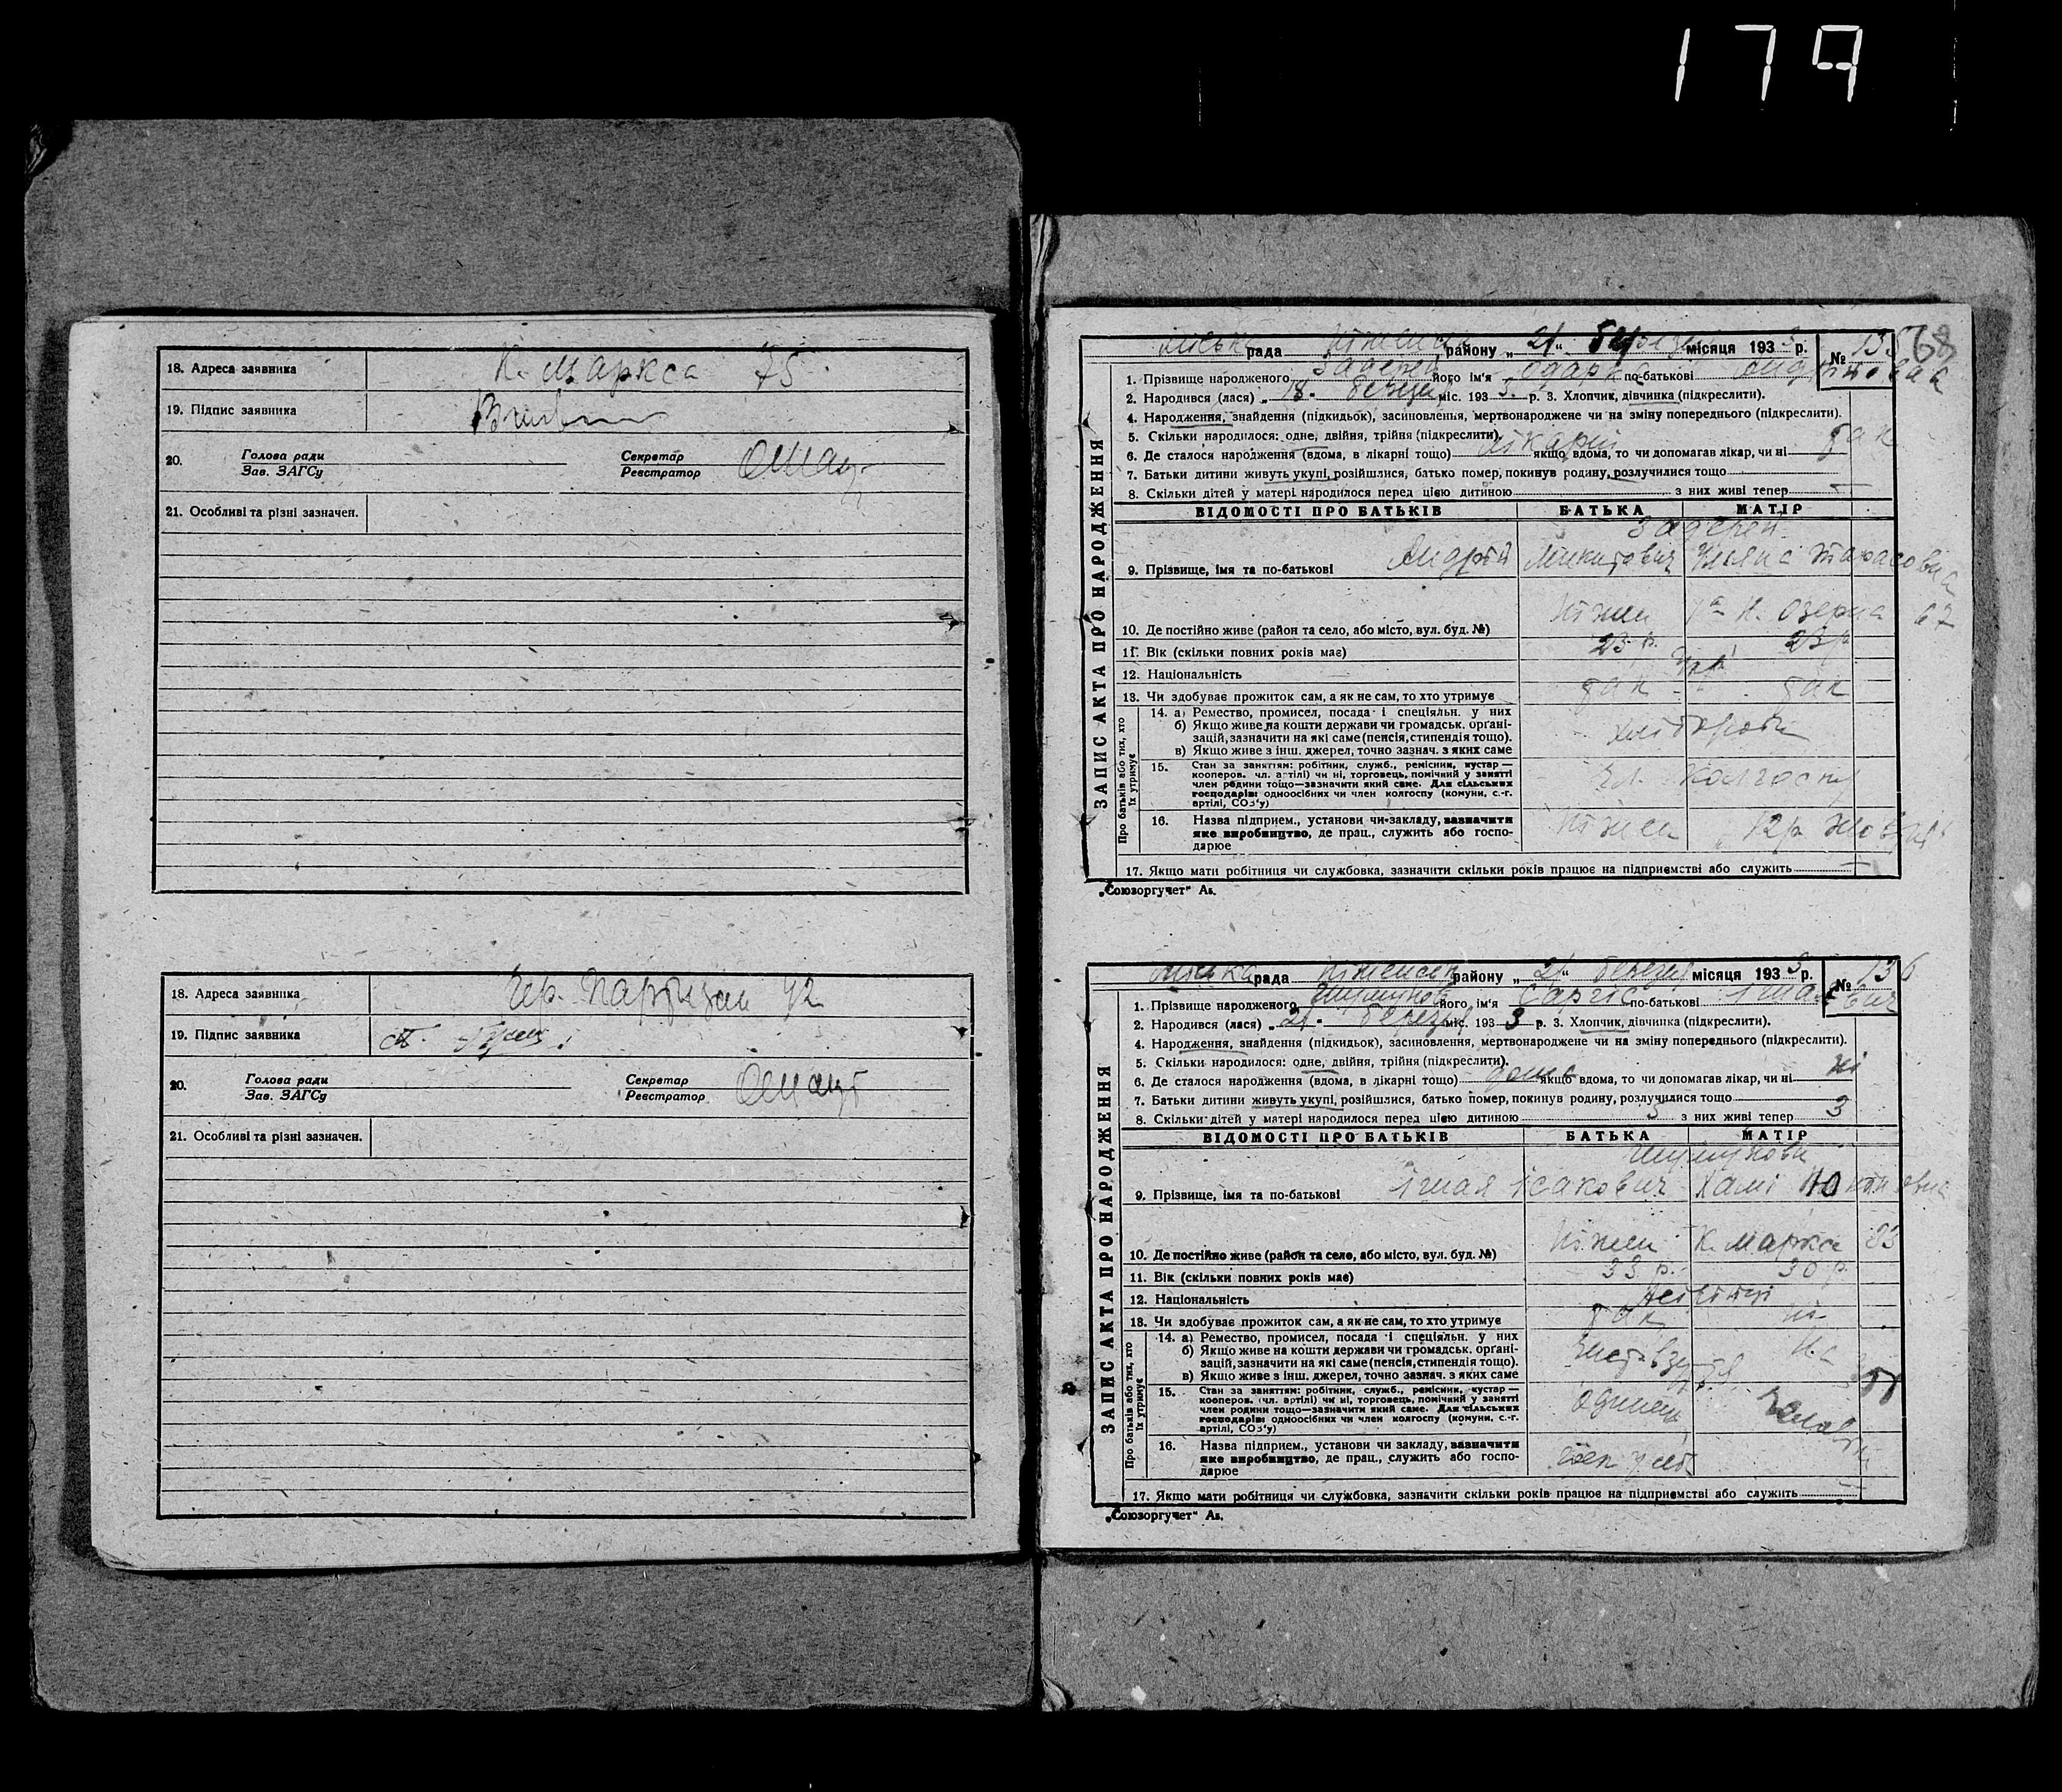 179
18. Адреса заявника К. Маркса 75
19. Підпис заявника
20. Голова ради Зав. ЗАГСу Секретар Реєстратор
21. Особливі та різні зазначен.
18. Адреса заявника Чер. Партизан 42
19. Підпис заявника
20. Голова ради Зав. ЗАГСу Секретар Реєстратор
21. Особливі та різні зазначен.
68
ЗАПИС АКТА ПРО НАРОДЖЕННЯ
міська рада Ніженськ району „21“ березня місяця 1933 р. № 135
1. Прізвище народженого Задерей його ім'я Одарка по-батькові Андріївна
2. Народився (лася) „18. березня міс. 193 3 р. 3. Хлопчик, дівчинка (підкреслити).
4. Народження, знайдення (підкидьок), засиновлення, мертвонароджене чи на зміну попереднього (підкреслити).
5. Скільки народилося: одне, двійня, трійня (підкреслити).
6. Де сталося народження (вдома, в лікарні тощо) лікарні якщо вдома, то чи допомагав лікар, чи ні так
7. Батьки дитини живуть укупі, розійшлися, батько помер, покинув родину, розлучилися тощо
8. Скільки дітей у матері народилося перед цією дитиною з них живі тепер —
ВІДОМОСТІ ПРО БАТЬКІВ БАТЬКА МАТІР
Задерей
9. Прізвище, імя та по-батькові Андрій Микитович Уляна Тарасовна
10. Де постійно живе (район та село, або місто, вул. буд. №) Ніжен Н. Озерна 67
11. Вік (скільки повних років має) 23 р. 23 р
12. Національність Укр
13. Чи здобуває прожиток сам, а як не сам, то хто утримує так так
Про батьків або тих, хто їх утримує
14. а) Ремество, промисел, посада і спеціяльн. у них
б) Якщо живе на кошти держави чи громадськ. орґані-
зацій, зазначити на які саме (пенсія, стипендія тощо).
в) Якщо живе з інш. джерел, точно зазнач. з яких саме
хліборобн
15. Стан за заняттям: робітник, служб., ремісник, кустар—
кооперов. чл. артілі) чи ні, торговець, помічний у занятті
член родини тощо—зазначити який саме. Для сільських
господарів: одноосібних чи член колгоспу (комуни, с.-г.
артілі, СОЗ'у)
чл. колгоспу
16. Назва підприєм., установи чи закладу, зазначити
яке виробництво, де прац., служить або госпо-
дарює
Ніжен 12 р Жовтня
17. Якщо мати робітниця чи службовка, зазначити скільки років працює на підприємстві або служить —
„Союзоргучет“ А₅.
ЗАПИС АКТА ПРО НАРОДЖЕННЯ
міська рада Ніженськ району „21“ березня місяця 1933 р. № 136
1. Прізвище народженого Шумунов його ім'я Саргіс по-батькові
2. Народився (лася) „21. березня міс. 193 3 р. 3. Хлопчик, дівчинка (підкреслити).
4. Народження, знайдення (підкидьок), засиновлення, мертвонароджене чи на зміну попереднього (підкреслити).
5. Скільки народилося: одне, двійня, трійня (підкреслити).
6. Де сталося народження (вдома, в лікарні тощо) дома якщо вдома, то чи допомагав лікар, чи ні ні
7. Батьки дитини живуть укупі, розійшлися, батько помер, покинув родину, розлучилися тощо
8. Скільки дітей у матері народилося перед цією дитиною 3 з них живі тепер 3
ВІДОМОСТІ ПРО БАТЬКІВ БАТЬКА МАТІР
Шумунови
9. Прізвище, імя та по-батькові Ішая Ісакович Хамі
10. Де постійно живе (район та село, або місто, вул. буд. №) Ніжен К. Маркса 83
11. Вік (скільки повних років має) 33 р. 30 р
12. Національність
13. Чи здобуває прожиток сам, а як не сам, то хто утримує так ні
Про батьків або тих, хто їх утримує
14. а) Ремество, промисел, посада і спеціяльн. у них
б) Якщо живе на кошти держави чи громадськ. орґані-
зацій, зазначити на які саме (пенсія, стипендія тощо).
в) Якщо живе з інш. джерел, точно зазнач. з яких саме
15. Стан за заняттям: робітник, служб., ремісник, кустар—
кооперов. чл. артілі) чи ні, торговець, помічний у занятті
член родини тощо—зазначити який саме. Для сільських
господарів: одноосібних чи член колгоспу (комуни, с.-г.
артілі, СОЗ'у)
16. Назва підприєм., установи чи закладу, зазначити
яке виробництво, де прац., служить або госпо-
дарює
17. Якщо мати робітниця чи службовка, зазначити скільки років працює на підприємстві або служить —
„Союзоргучет“ А₅.